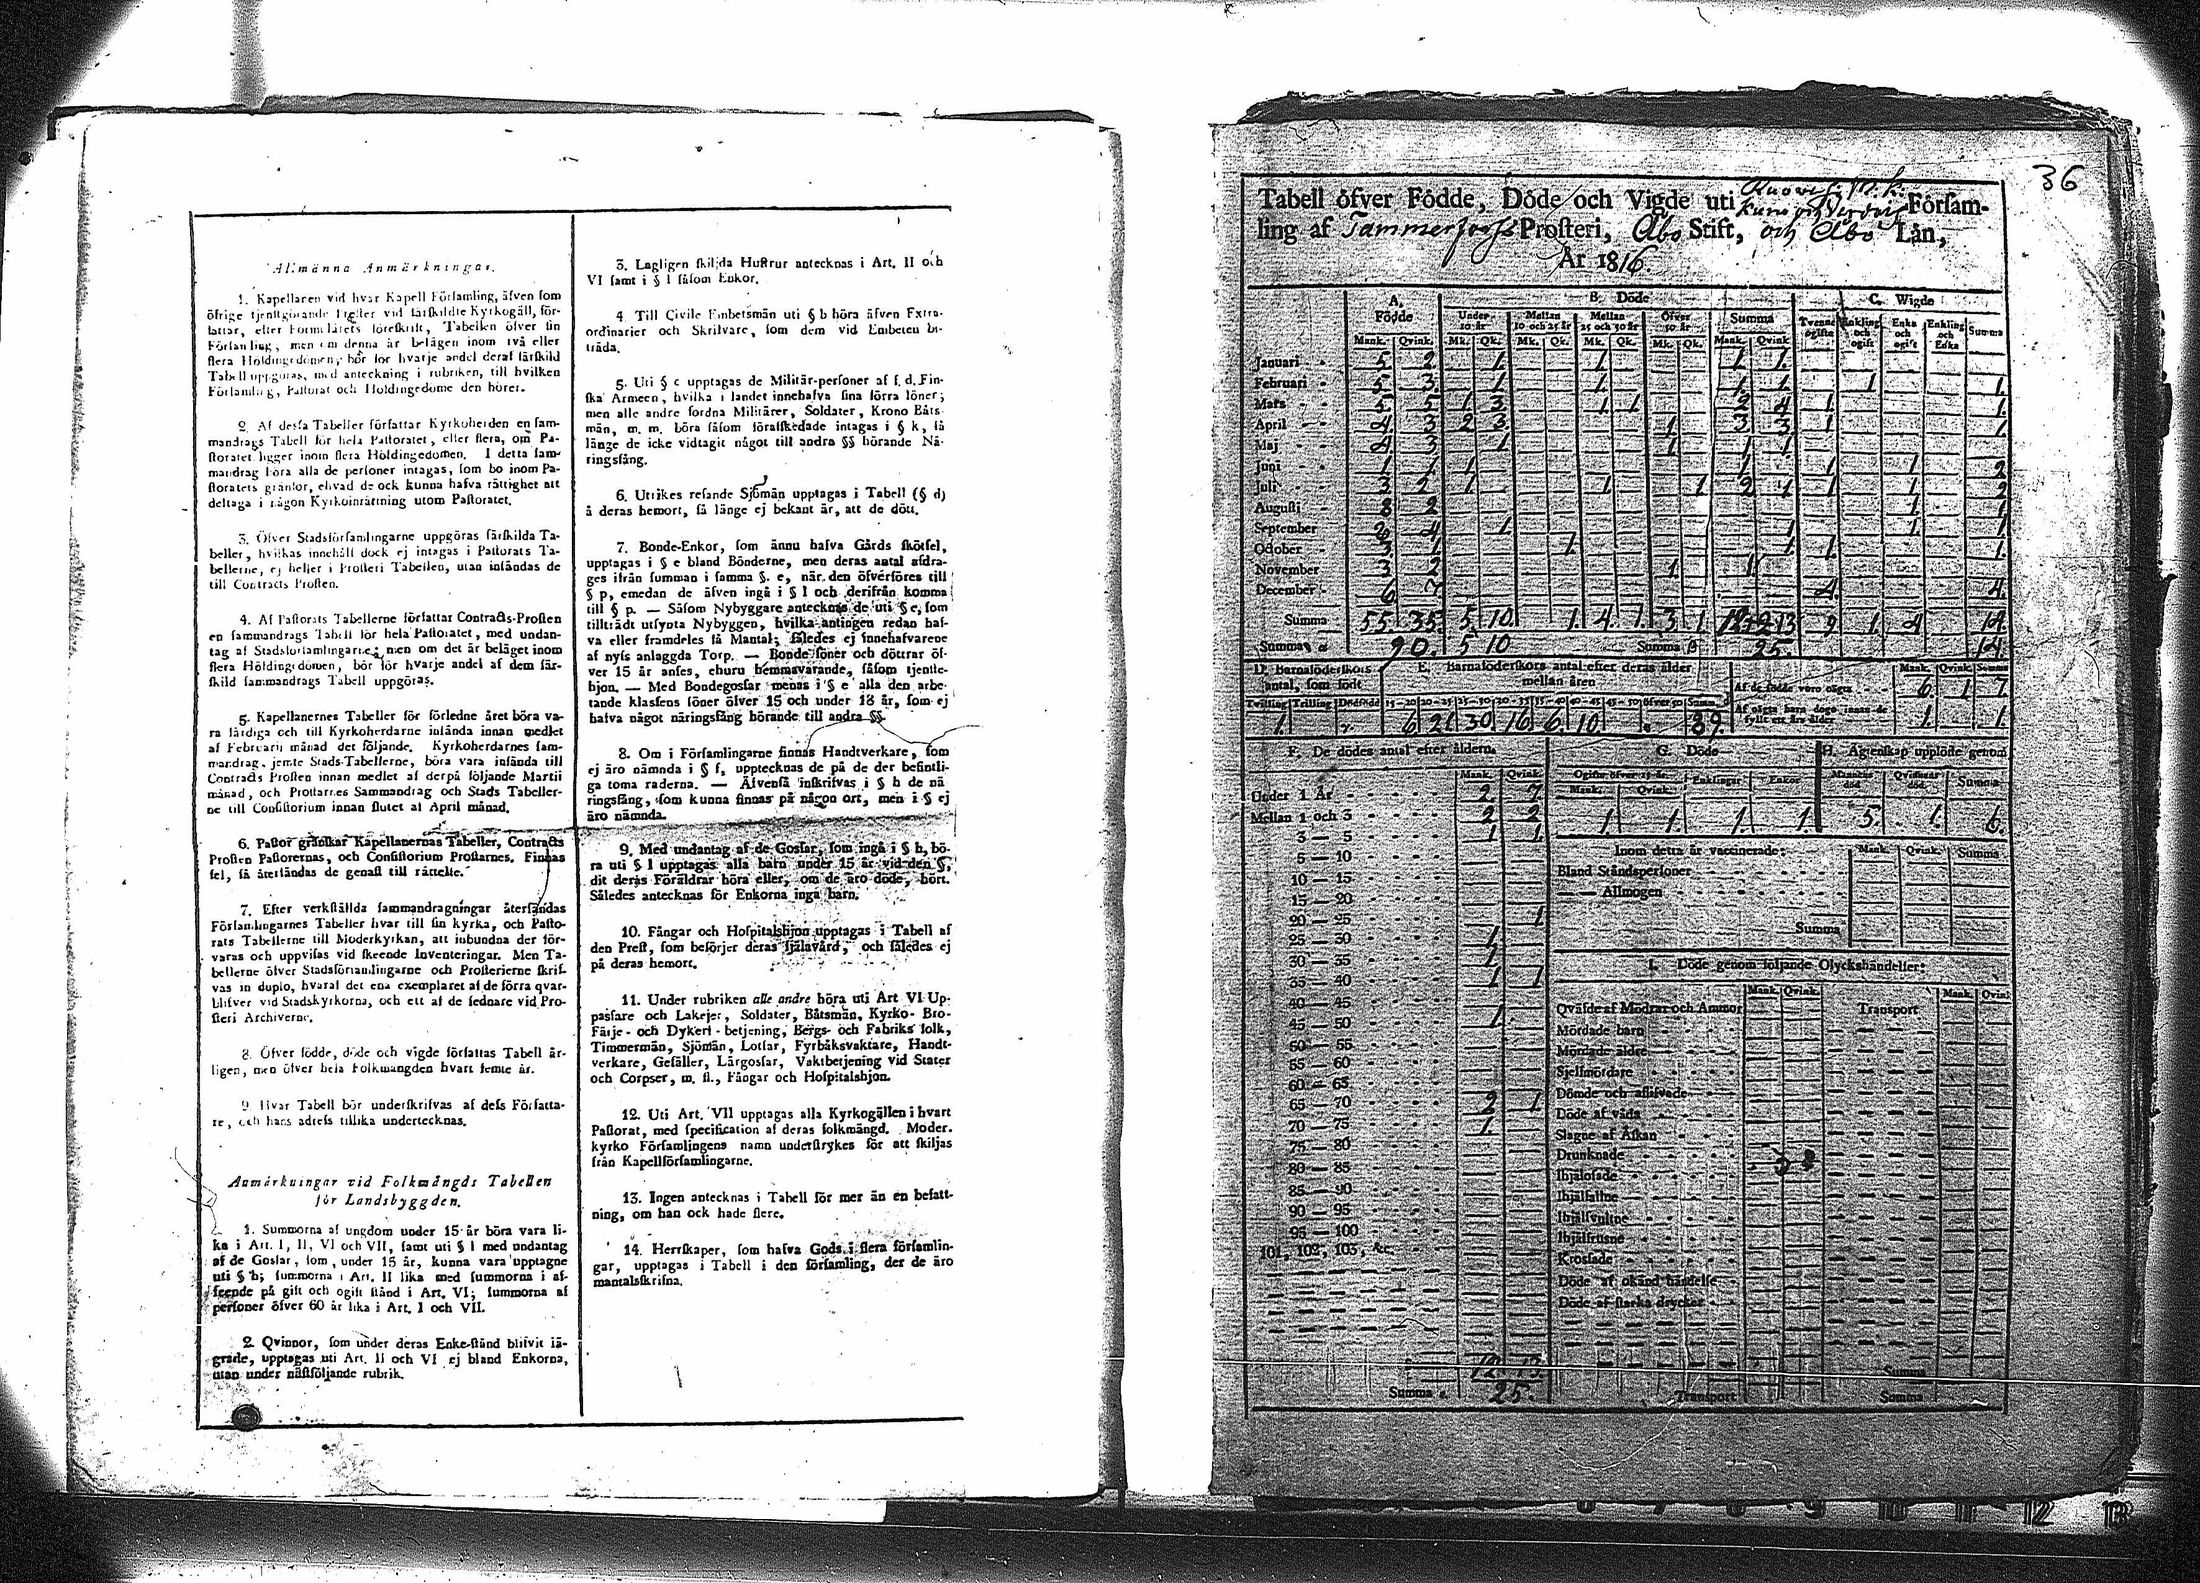 Allmänna Anmärkningar.
1. Kapellaren vid hvar Kapell Förſamling, äfven ſom
öfrige tjenſtgörande Preſter vid ſärſkildte Kyrkogäll, för-
fattar, efter Formulärets föreſkrift, Tabellen öfver ſin
Förſamling, men om denna är belägen inom två eller
flera Höldingedömen, bör för hvarje andel deraf ſärſkild
Tabell uppgöras, med anteckning i rubriken, till hvilken
Förſamling, Paſtorat och Höldingedöme den hörer.
2. Af desſa Tabeller författar Kyrkoherden en ſam-
mandrags Tabell för hela Paſtoratet, eller flera, om Pa-
ſtoratet ligger inom flera Höldingedömen. I detta ſam-
mandrag böra alla de perſoner intagas, ſom bo inom Pa-
ſtoratets gränſor, ehvad de ock kunna hafva rättighet att
deltaga i någon Kyrkoinrättning utom Paſtoratet.
3. Öfver Stadsförſamlingarne uppgöras ſärſkilda Ta-
beller, hvilkas innehåll dock ej intagas i Paſtorats Ta-
bellerne, ej heller i Proſteri Tabellen, utan inſändas de
till Contracts Proſten.
4. Af Paſtorats Tabellerne författar Contracts-Proſten
en ſammandrags Tabell för hela Paſtoratet, med undan-
tag af Stadsförſamlingarne; men om det är beläget inom
flera Höldingedömen, bör för hvarje andel af dem ſär-
ſkild ſammandrags Tabell uppgöras.
5. Kapellanernes Tabeller för förledne året böra va-
ra färdiga och till Kyrkoherdarne inſända innan medlet
af Februarii månad det följande. Kyrkoherdarnes ſam-
mandrag, jemte Stads-Tabellerne, böra vara inſända till
Contracts Proſten innan medlet af derpå följande Martii
månad, och Proſtarnes Sammandrag och Stads Tabeller-
ne till Conſiſtorium innan ſlutet af April månad.
6. Paſtor granſkar Kapellanernas Tabeller, Contracts
Proſten Paſtorernas, och Conſiſtorium Proſtarnes. Finnas
fel, ſå återſändas de genaſt till rättelſe.
7. Efter verkſtällda ſammandragningar återſändas
Förſamlingarnes Tabeller hvar till ſin kyrka, och Paſto-
rats Tabellerne till Moderkyrkan, att inbundna der för-
varas och uppviſas vid ſkeende Inventeringar. Men Ta-
bellerne öfver Stadsförſamlingarne och Proſterierne ſkrif-
vas in duplo, hvaraf det ena exemplaret af de förra qvar-
blifver vid Stadskyrkorna, och ett af de ſednare vid Pro-
ſteri Archiverne.
8. Öfver födde, döde och vigde författas Tabell år-
ligen, men öfver hela Folkmängden hvart femte år.
9. Hvar Tabell bör underſkrifvas af deſs Författa-
re, och hans adreſs tillika undertecknas.
Anmärkningar vid Folkmängds Tabellen
för Landsbyggden.
1. Summorna af ungdom under 15 år böra vara li-
ka i Art. I, II, VI och VII, ſamt uti § l med undantag
af de Goſſar, ſom, under 15 år, kunna vara upptagne
uti § h; ſummorna i Art. II lika med ſummorna i af-
ſeende på gift och ogift ſtånd i Art. VI; ſummorna af
perſoner öfver 60 år lika i Art. I och VII.
2. Qvinnor, ſom under deras Enke-ſtånd blifvit lä-
grade, upptagas uti Art. II och VI ej bland Enkorna,
utan under näſtföljande rubrik.
3. Lagligen ſkiljda Huſtrur antecknas i Art. II och
VI ſamt i § l ſåſom Enkor.
4. Till Civile Embetsmän uti § b höra äfven Extra-
ordinarier och Skrifvare, ſom dem vid Embeten bi-
träda.
5. Uti § c upptagas de Militär-perſoner af f. d. Fin-
ſka Armeen, hvilka i landet innehafva ſina förra löner;
men alle andre fordna Militärer, Soldater, Krono Båts-
män, m. m. böra ſåſom förafſkedade intagas i § k, ſå
länge de icke vidtagit något till andra §§ hörande Nä-
ringsfång.
6. Utrikes reſande Sjömän upptagas i Tabell (§ d)
å deras hemort, ſå länge ej bekant är, att de dött.
7. Bonde-Enkor, ſom ännu hafva Gårds ſkötſel,
upptagas i § e bland Bönderne, men deras antal afdra-
ges ifrån ſumman i ſamma §. e, när den öfverföres till
§ p, emedan de äfven ingå i § l och derifrån komma
till § p. — Såſom Nybyggare antecknas de uti § e, ſom
tillträdt utſynta Nybyggen, hvilka antingen redan haf-
va eller framdeles få Mantal; ſåledes ej innehafvarene
af nyſs anlaggda Torp. — Bonde ſöner och döttrar öf-
ver 15 år anſes, ehuru hemmavarande, ſåſom tjenſte-
hjon. — Med Bondegoſſar menas i § e alla den arbe-
tande klasſens ſöner öfver 15 och under 18 år, ſom ej
hafva något näringsfång hörande till andra §§.
8. Om i Förſamlingarne finnas Handtverkare, ſom
ej äro nämnda i § f, upptecknas de på de der befintli-
ga toma raderna. — Äfvenſå inſkrifvas i § h de nä
ringsfång, ſom kunna finnas på någon ort, men i § ej
äro nämnda.
9. Med undantag af de Goſſar, ſom ingå i § h, bö-
ra uti § l upptagas alla barn under 15 år vid den §,
dit deras Föräldrar höra eller, om de äro döde, hört.
Således antecknas för Enkorna inga barn.
10. Fångar och Hoſpitalshjon upptagas i Tabell af
den Preſt, ſom beſörjer deras ſjälavård, och ſåledes ej
på deras hemort.
11. Under rubriken alle andre höra uti Art VI Up-
pasſare och Lakejer, Soldater, Båtsmän, Kyrko- Bro-
Färje- och Dykeri-betjening, Bergs- och Fabriks folk,
Timmermän, Sjömän, Lotſar, Fyrbåksvaktare, Handt-
verkare, Geſäller, Lärgosſar, Vaktbetjening vid Stater
och Corpser, m. fl., Fångar och Hoſpitalshjon.
12. Uti Art. VII upptagas alla Kyrkogällen i hvart
Paſtorat, med ſpecification af deras folkmängd. Moder-
kyrko Förſamlingens namn underſtrykes för att ſkiljas
från Kapellförſamlingarne.
13. Ingen antecknas i Tabell för mer än en befatt-
ning, om han ock hade flere.
14. Herrſkaper, ſom hafva Gods i flera förſamlin-
gar, upptagas i Tabell i den förſamling, der de äro
mantalsſkrifna.
36
Tabell öfver Födde, Döde och Vigde uti Förſam-
ling af Tammerfors Proſteri, Åbo Stift, och Åbo Län,
År 1816.
A. Födde B. Döde C. Wigde
Under 10 år Mellan 10 och 25 år Mellan 25 och 50 år Öfver 50 år Summa Tvenne ogifte Enkling och ogift Enka och ogift Enkling och Enka Summa
Mank. Qvink. Mk. Qk. Mk. Qk. Mk. Qk. Mk. Qk. Mank. Qvink.
Januari 5. 2. 1. 1. 1. 1.
Februari 5. 3. 1. 1. 1. 1. 1. 1.
Mars 5. 5. 1. 3. 1. 1. 2. 4. 1. 1.
April 4. 3. 2. 3. 1. 3. 3. 1. 1.
Maj 4. 3. 1. 1. 1. 1.
Juni 1. 1. 1. 1. 1. 1. 2.
Juli 3. 2. 1. 1. 1. 2. 1. 1. 1. 2.
Auguſti 8. 2. 1. 1.
September 4. 1. 1. 1. 1.
October 3. 1. 1. 1. 1. 1.
November 3. 2. 1. 1.
December 6. 7. 4. 4.
Summa 55. 35. 5. 10. 1. 4. 1. 3. 1. 13 9. 1. 4. 14.
Summa α 90. 5 10 Summa β 25. 14.
D. Barnaföderſkors antal, ſom födt E. Barnaföderſkors antal efter deras ålder mellan åren Mank. Qvink. Summa
Af de födde voro oägta 6. 1. 7.
Tvilling Trilling Dödfödt 15—20 20—25 25—30 30—35 35—40 40—45 45—50 öfver 50 Summa Af oägta barn dogo innan de fyllt ett års ålder 1. 1.
1. 6. 21. 30. 16. 6. 10. 89.
F. De dödes antal efter åldern. G. Döde H. Ägtenſkap upplöſte genom
Mank. Qvink. Ogifte öfver 15 år. Enklingar Enkor Mannens död. Qvinnans död. Summa
Mank. Qvink.
Under 1 År 2. 7.
Mellan 1 och 3 2. 2. 1. 1. 1. 1. 5. 1. 6.
3 — 5 1. 1.
5 — 10 Inom detta år vaccinerade: Mank. Qvink. Summa
10 — 15 Bland Ståndsperſoner
15 — 20 — — Allmogen
20 — 25 1.
25 — 30 1. Summa
30 — 35 1.
35 — 40 1. 1. I. Döde genom följande Olyckshändelſer:
40 — 45 Mank. Qvink. Mank. Qvink.
45 — 50 1. Qväfde af Mödrar och Ammor Transport
50 — 55 Mördade barn
55 — 60 Mördade äldre
60 — 65 Sjelfmördare
65 — 70 2. 1. Dömde och aflifvade
70 — 75 1. Döde af våda
75 — 80 Slagne af Åſkan
80 — 85 Drunknade
85 — 90 Ihjälfallne
90 — 95
95 — 100 Ihjälfrusne
101, 102, 103, &c. Kroſſade
Döde af okänd händelſe
Döde af ſtarka drycker
12. 13. Summa
Summa 25. Transport Summa
12